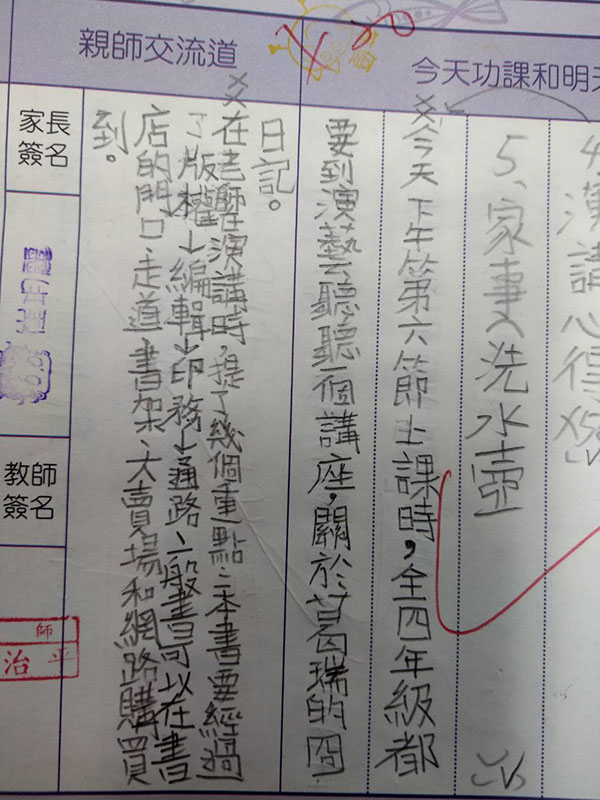 4、演講心得X50
5、家事、洗水壺
今天下午第六節上課時,全四年級都
要到演藝廳聽一個講座,關於葛瑞的囧
日記。
在老師在演講時,提了幾個重點:一本書要經過
了版權→編輯→印務→通路、一般書可以在書
店的門口、走道、書架、大賣場和網路購買
到。
今天功課和明天
親師交流道
家長
簽名
教師
簽名
師
治平